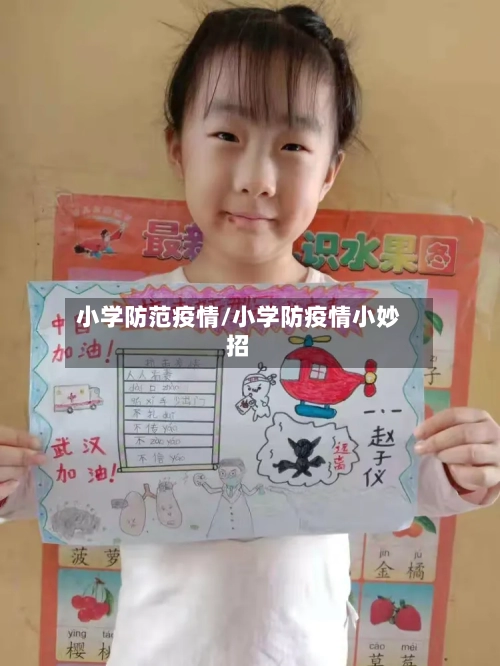 最
识水果图
小学防范疫情/小学防疫情小妙
招
中国
加油！
武汉
加油！
人人有责
不传yáo
不信yáo
远离
一·一
赵子仪
子
菠 萝
yīng táo
樱 桃
jīn jú
金 橘
cǎo méi
草 莓